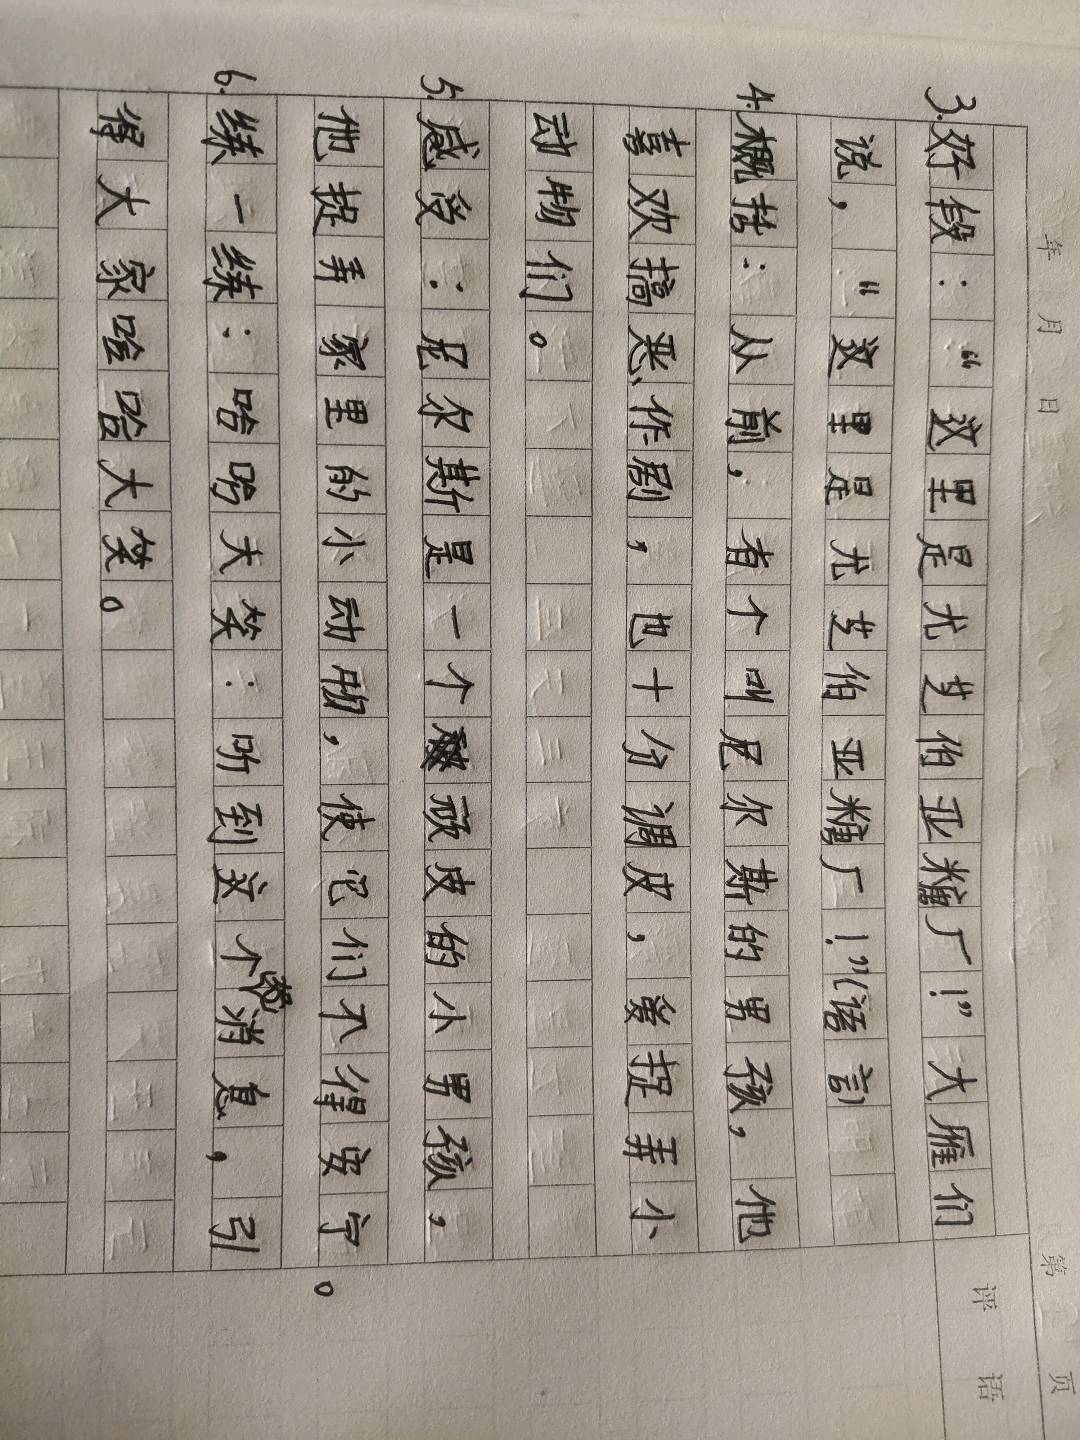 年 月 日 第 页
评语
3.好段：“这里是尤芝伯亚糖厂！”大雁们
说，“这里是尤芝伯亚糖厂！”（语言）
4.概括：从前，有个叫尼尔斯的男孩，他
喜欢搞恶作剧，也十分调皮，爱捉弄小
动物们。
5.感受：尼尔斯是一个顽皮的小男孩，
他捉弄家里的小动物，使它们不得安宁。
6.练一练：哈哈大笑：听到这个消息，引
得大家哈哈大笑。